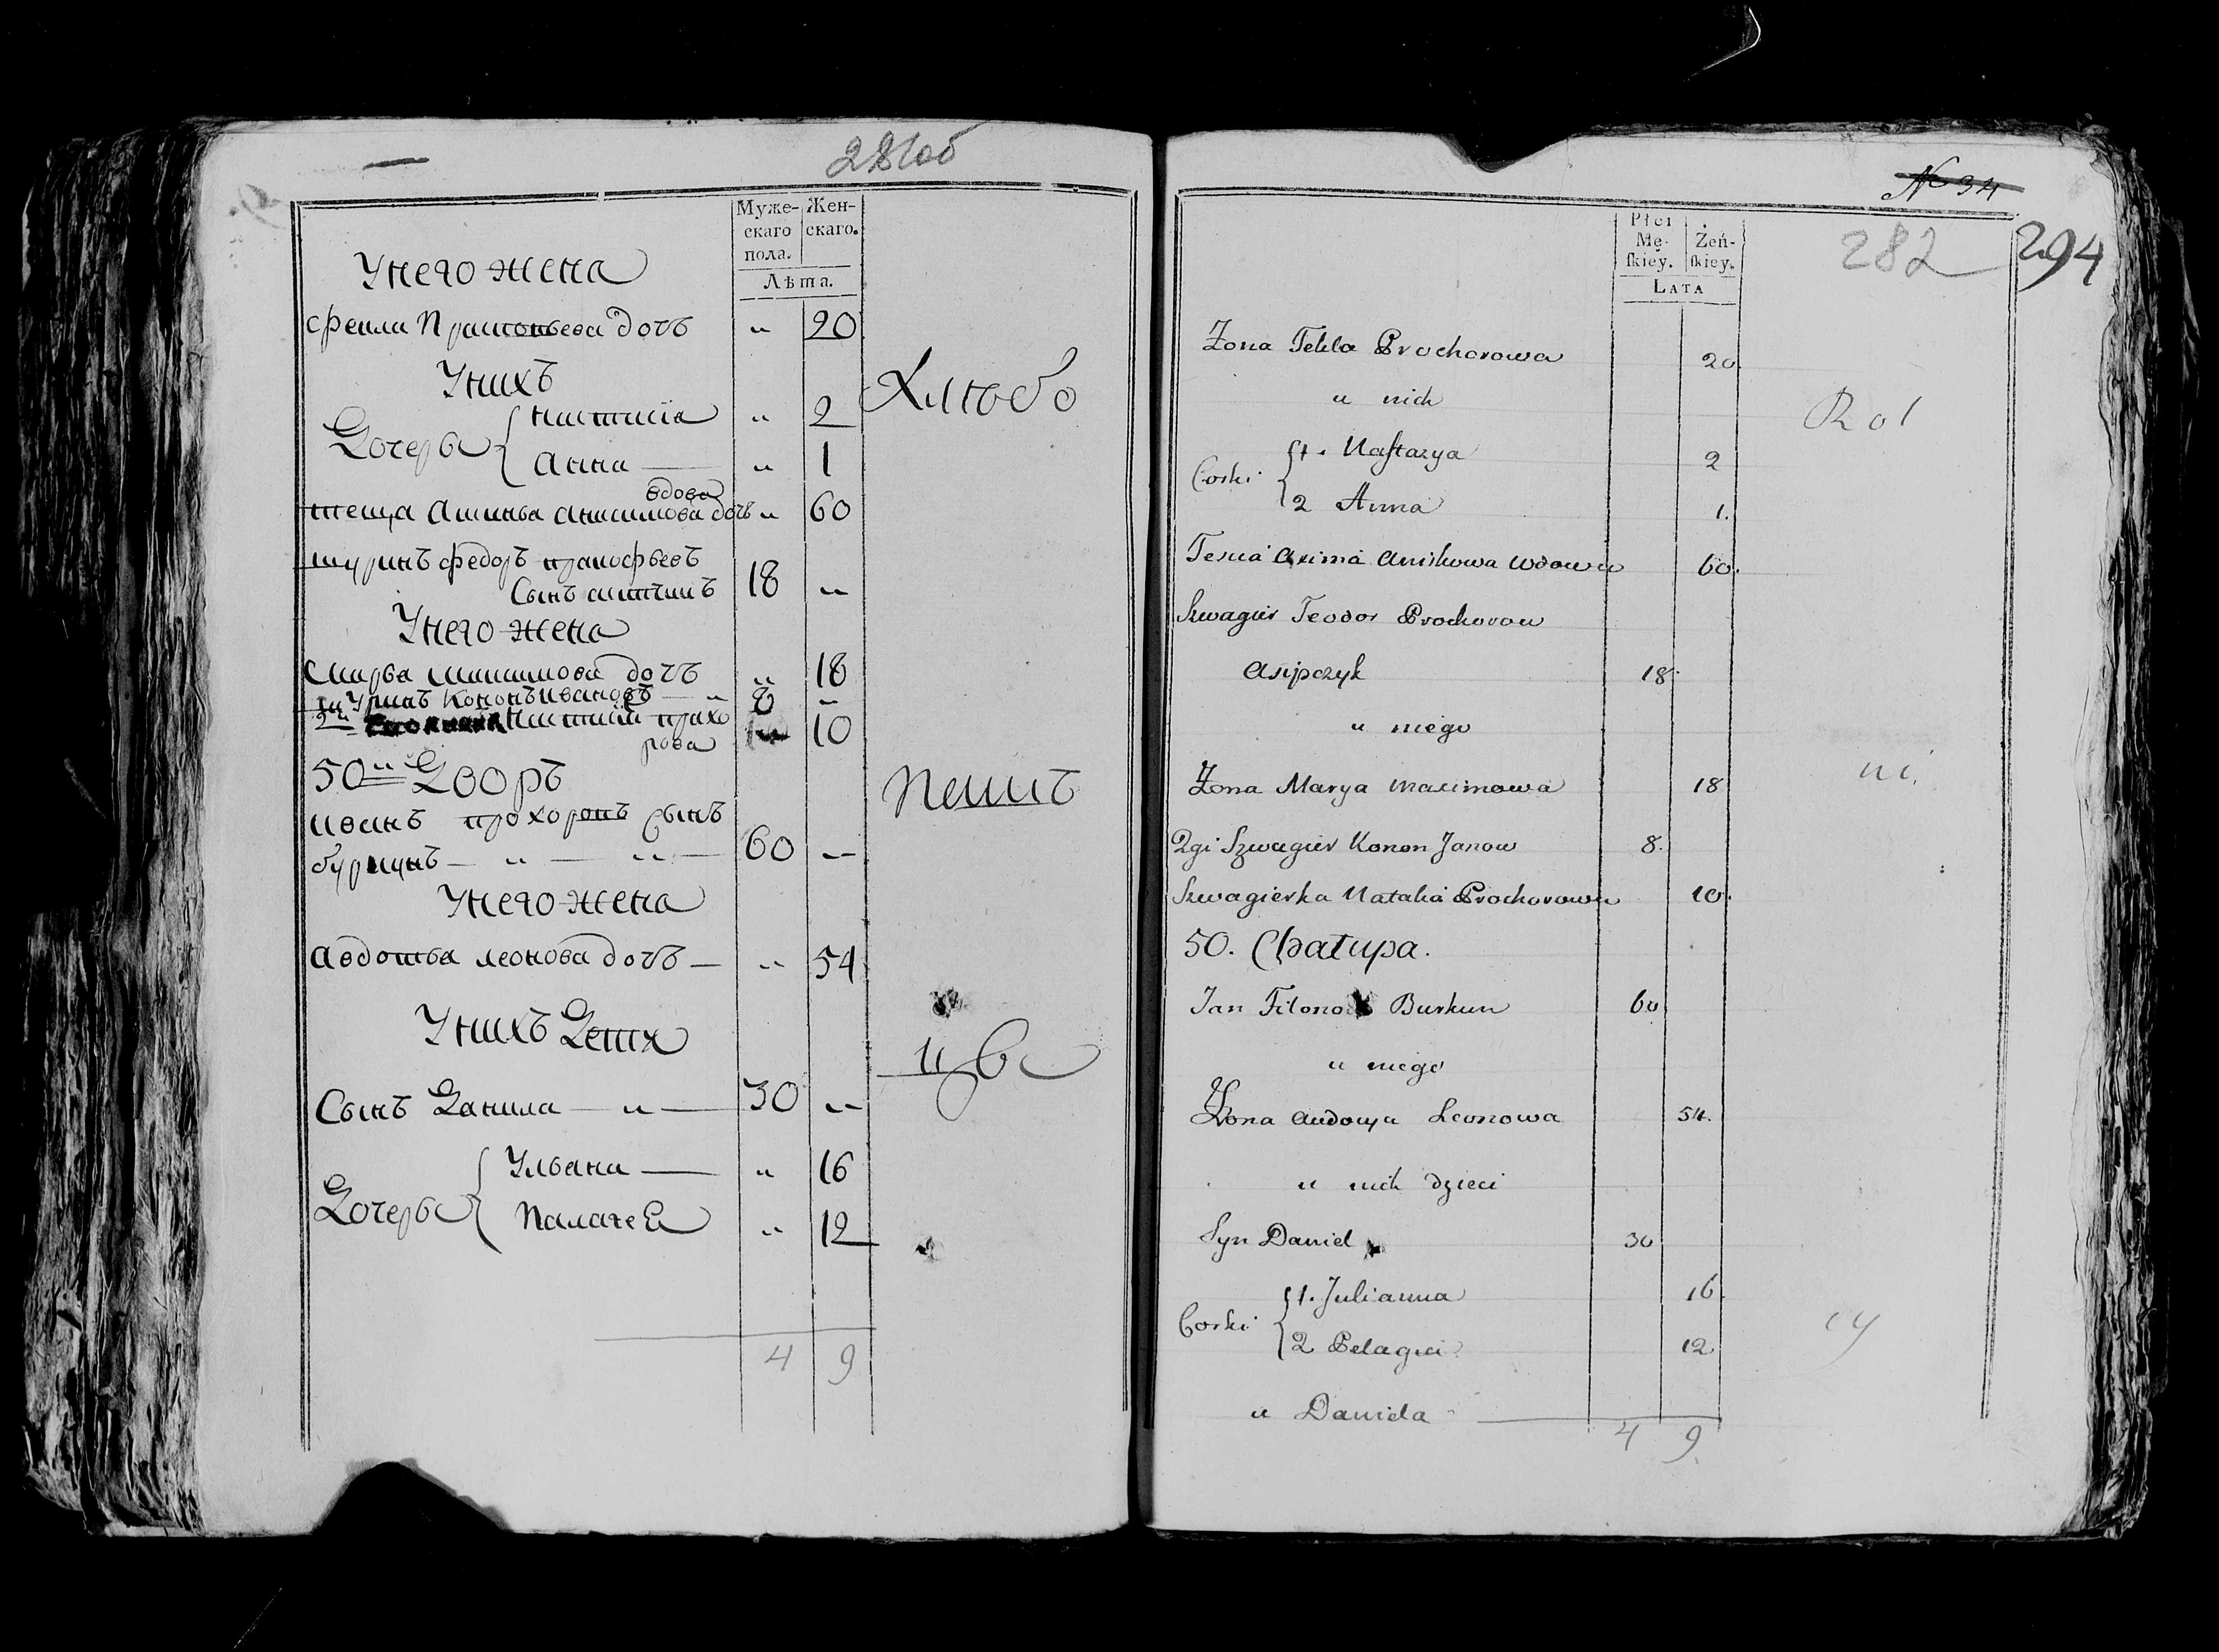 281об
Муже-
скаго
пола.
Жен-
скаго.
Лѣта.
У него жена
Фекла дочь „ 20
У нихъ
Дочеры { Настасiа „ 2
Анна — „ 1
вдова
теща дочь „ 60
шуринъ федоръ
Сынъ 18 „
У него жена
Марья Максимова дочь „ 18
шуринъ Кононъ Ивановъ — „ 8 –
прохо
рова 10
50й Дворъ
Иванъ прохоровъ Сынъ
буркунъ — „ — „ — 60 —
У него жена
Авдотья леонова дочь — „ 54
У нихъ Дети
Сынъ Данила — „ — 30 „
Дочеры { Ульана — „ 16
Палагеа „ 12
4 9
Хлѣбо
Пешъ
цы
N 34
282
294
Płci
Mę-
ſkiey.
Żeń-
ſkiey.
LATA
Żona Tekla Prochorowa 20.
u nich
Corki { 1. Naſtazya 2
2 Anna 1.
Tesца Anikowa wdowa 60.
Szwagier Teodor Prochorow
Asipczyk 18.
u niego
Żona Marya Maximowa 18
2gi Szwagier Konon Janow 8.
Szwagierka Natalia Prochorowa 10.
50. Chatupa.
Jan Burkun 60
u niego
Żona Audocya Leonowa 54.
u nich dzieci
Syn Daniel 30
Corki { 1. Julianna 16.
2 Pelagia 12
u Daniela
4 9.
Rol
ni.
cy